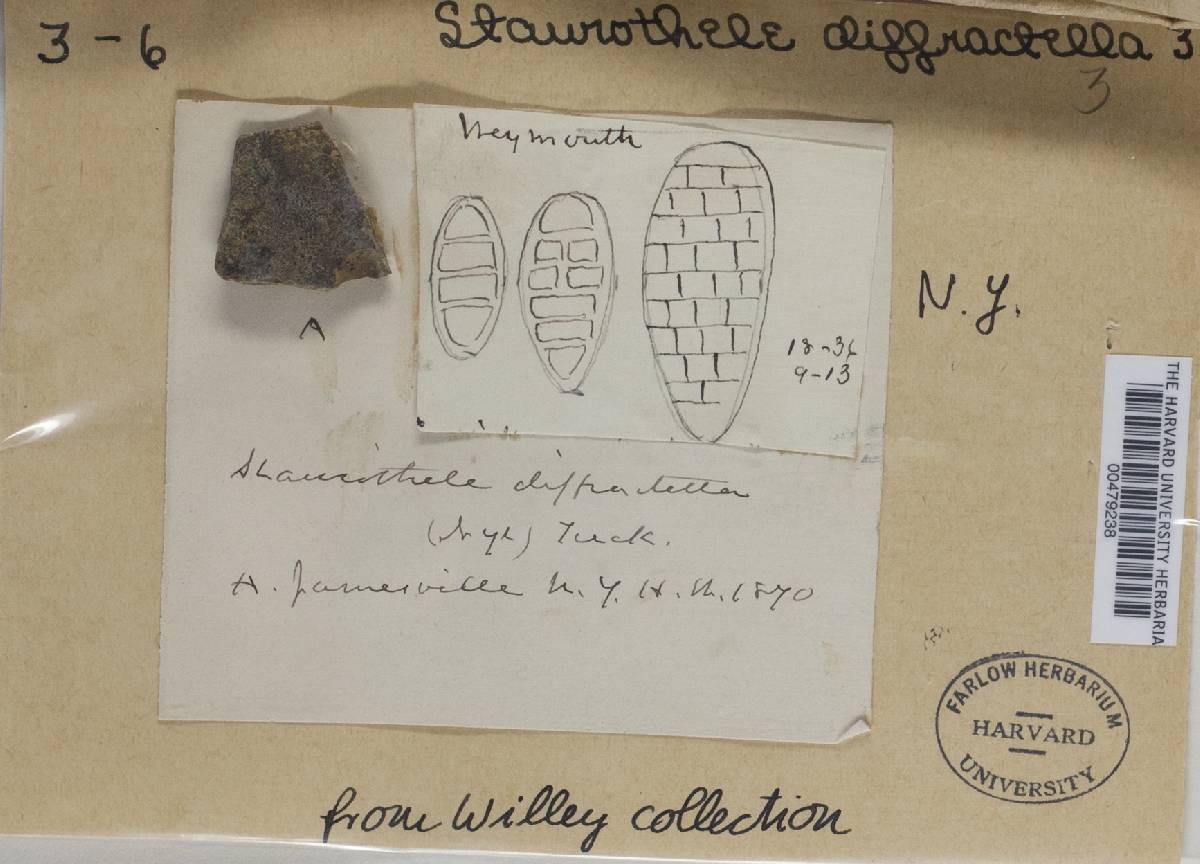 3-6
Staurothele diffractella 3
3
Weymouth
N.Y.
A
18-36
9-13
Staurothele diffractella
(Nyl) Tuck.
A. Jamesville N.Y. H.W. 1870
THE HARVARD UNIVERSITY HERBARIA
00479238
FARLOW HERBARIUM
HARVARD
UNIVERSITY
from Willey collection